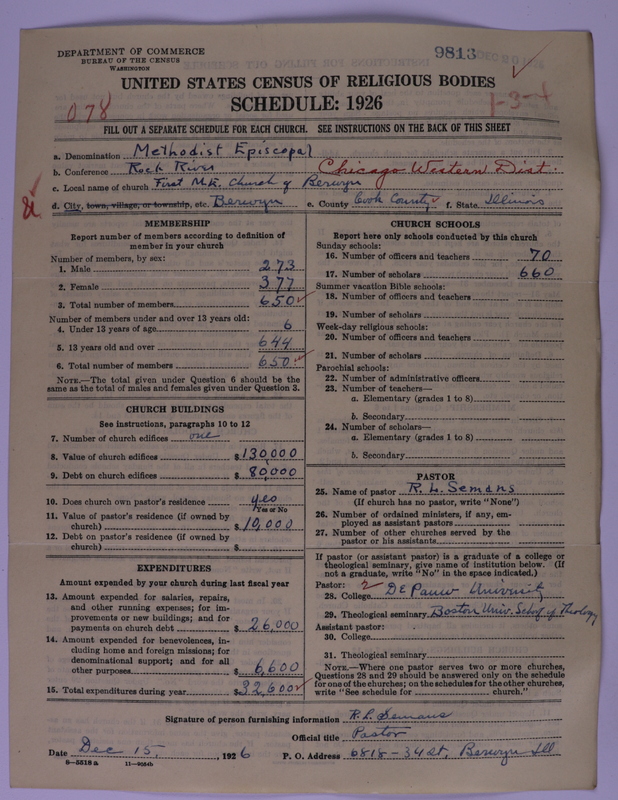 DEPARTMENT OF COMMERCE
BUREAU OF THE CENSUS
WASHINGTON
9813
UNITED STATES CENSUS OF RELIGIOUS BODIES
SCHEDULE: 1926
078
1-3-4
FILL OUT A SEPARATE SCHEDULE FOR EACH CHURCH. SEE INSTRUCTIONS ON THE BACK OF THIS SHEET
a. Denomination Methodist Episcopal
b. Conference Rock River Chicago Western Dist.
c. Local name of church First M.E. Church of Berwyn
d. City, town, village, or township, etc. Berwyn e. County Cook County f. State Illinois
MEMBERSHIP
Report number of members according to definition of
member in your church
Number of members, by sex:
1. Male 273
2. Female 377
3. Total number of members 650
Number of members under and over 13 years old:
4. Under 13 years of age 6
5. 13 years old and over 644
6. Total number of members 650
NOTE.—The total given under Question 6 should be
same as the total of males and females given under Question 3.
CHURCH BUILDINGS
See instructions, paragraphs 10 to 12
7. Number of church edifices one
8. Value of church edifices $130,000
9. Debt on church edifices $80,000
10. Does church own pastor's residence yes
Yes or No
11. Value of pastor's residence (if owned by
church) $10,000
12. Debt on pastor's residence (if owned by
church) $
EXPENDITURES
Amount expended by your church during last fiscal year
13. Amount expended for salaries, repairs,
and other running expenses; for im-
provements or new buildings; and for
payments on church debt $26,000
14. Amount expended for benevolences, in-
cluding home and foreign missions; for
denominational support; and for all
other purposes $6,600
15. Total expenditures during year $32,600
CHURCH SCHOOLS
Report here only schools conducted by this church
Sunday schools:
16. Number of officers and teachers 70
17. Number of scholars 660
Summer vacation Bible schools:
18. Number of officers and teachers
19. Number of scholars
Week-day religious schools:
20. Number of officers and teachers
21. Number of scholars
Parochial schools:
22. Number of administrative officers
23. Number of teachers—
a. Elementary (grades 1 to 8)
b. Secondary
24. Number of scholars—
a. Elementary (grades 1 to 8)
b. Secondary
PASTOR
25. Name of pastor R. L. Semans
(If church has no pastor, write "None")
26. Number of ordained ministers, if any, em-
ployed as assistant pastors
27. Number of other churches served by the
pastor or his assistants
If pastor (or assistant pastor) is a graduate of a college or
theological seminary, give name of institution below. (If
not a graduate, write "No" in the space indicated.)
Pastor: 2
28. College De Pauw University
29. Theological seminary Boston Univ. School of Theology
Assistant pastor:
30. College
31. Theological seminary
NOTE.—Where one pastor serves two or more churches,
Questions 28 and 29 should be answered only on the schedule
for one of the churches; on the schedules for the other churches,
write "See schedule for church."
Signature of person furnishing information R. L. Semans
Official title Pastor
Date Dec 15, 1926 P. O. Address 6818-34 St, Berwyn Ill
8—5518 a 11—9554b